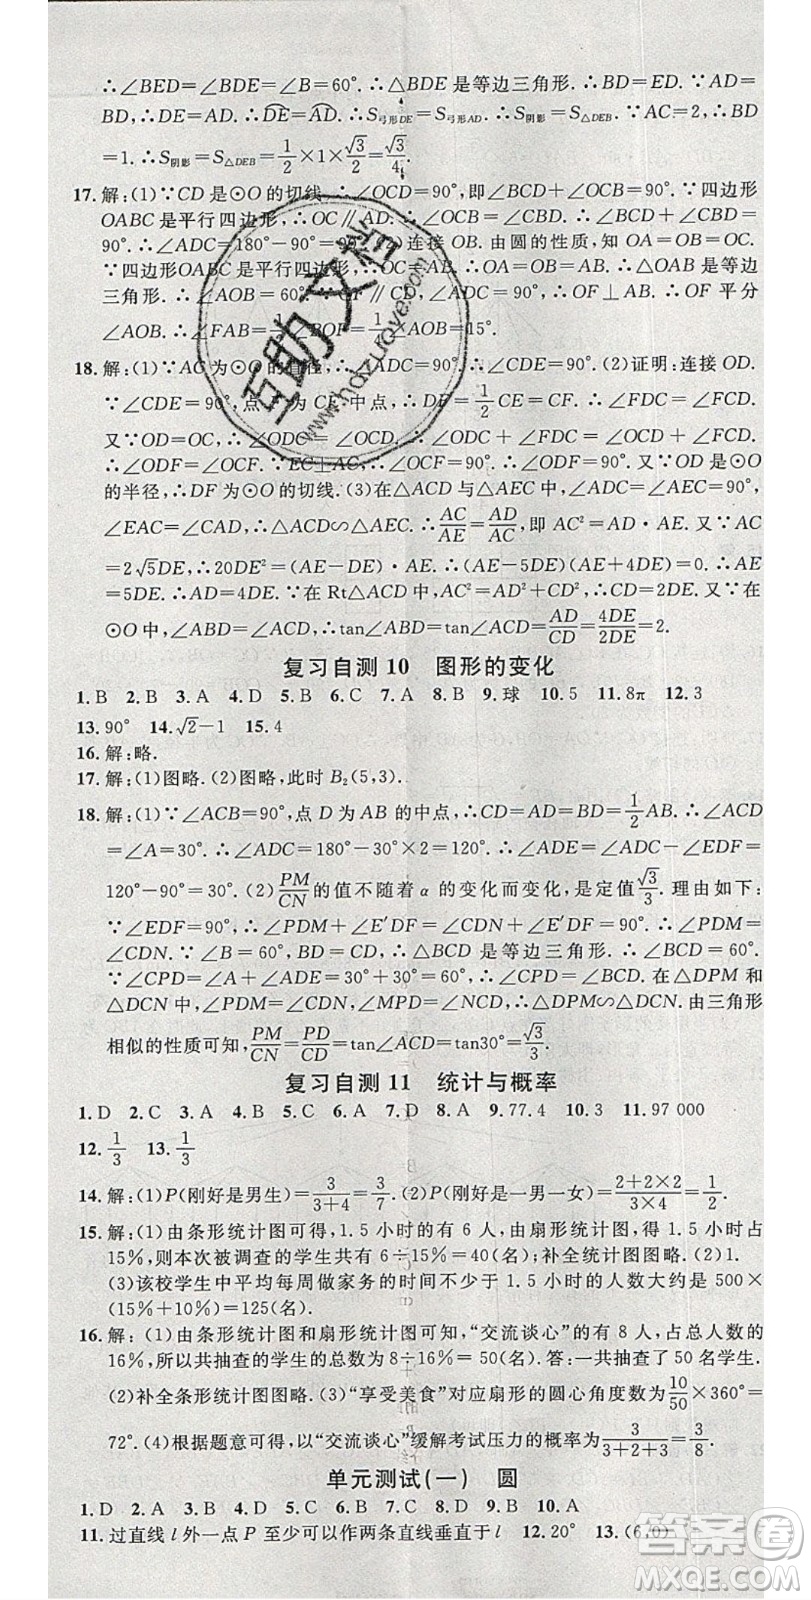 ∴∠BED=∠BDE=∠B=60°.∴△BDE是等边三角形.∴BE=ED.∵AD=
BD,∴DE=AD.∴DE=AD.∴S弓形DE=S弓形AD.∴S阴影=S△DEB.∵AC=2,∴BD
=1.∴S阴影=S△DEB=1/2×1×√3/2=√3/4.
17.解:(1)∵CD是⊙O的切线,∴∠OCD=90°,即∠BCD+∠OCB=90°.∵四边形
OABC是平行四边形,∴OC∥AD.∴∠CBD=∠OCB.∴∠CBD+∠BCD=
90°.∴∠ADC=180°-90°=90°.(2)连接OB.由圆的性质,知OA=OB=OC.
∵四边形OABC是平行四边形,∴OC=AB.∴OA=OB=AB.∴△OAB是等边
三角形.∴∠AOB=60°.∵OF∥CD,∠ADC=90°,∴OF⊥AB.∴OF平分
∠AOB.∴∠FAB=1/2∠BOF=1/4∠AOB=15°.
18.解:(1)∵AC为⊙O的直径,∴∠ADC=90°.∴∠CDE=90°.(2)证明:连接OD.
∵∠CDE=90°,点F为CE中点,∴DF=1/2CE=CF.∴∠FDC=∠FCD.
又∵OD=OC,∴∠ODC=∠OCD.∴∠ODC+∠FDC=∠OCD+∠FCD.
∴∠ODF=∠OCF.∵EC⊥AC,∴∠OCF=90°.∴∠ODF=90°.又∵OD是⊙O
的半径,∴DF为⊙O的切线.(3)在△ACD与△AEC中,∠ADC=∠ACE=90°,
∠EAC=∠CAD,∴△ACD∽△AEC.∴AC/AE=AD/AC,即AC²=AD·AE.又∵AC
=2√5DE,∴20DE²=(AE-DE)·AE.∴(AE-5DE)(AE+4DE)=0.∴AE
=5DE.∴AD=4DE.∵在Rt△ACD中,AC²=AD²+CD²,∴CD=2DE.又∵在
⊙O中,∠ABD=∠ACD,∴tan∠ABD=tan∠ACD=AD/CD=4DE/2DE=2.
复习自测10 图形的变化
1.B 2.B 3.A 4.D 5.B 6.C 7.A 8.B 9.球 10.5 11.8π 12.3
13.90° 14.√2-1 15.4
16.解:略.
17.解:(1)图略.(2)图略,此时B₂(5,3).
18.解:(1)∵∠ACB=90°,点D为AB的中点,∴CD=AD=BD=1/2AB.∴∠ACD
=∠A=30°.∴∠ADC=180°-30°×2=120°.∴∠ADE=∠ADC-∠EDF=
120°-90°=30°.(2)PM/CN的值不随着α的变化而变化,是定值√3/3.理由如下:
∵∠EDF=90°,∴∠PDM+∠E′DF=∠CDN+∠E′DF=90°.∴∠PDM=
∠CDN.∵∠B=60°,BD=CD,∴△BCD是等边三角形.∴∠BCD=60°.
∵∠CPD=∠A+∠ADE=30°+30°=60°,∴∠CPD=∠BCD.在△DPM和
△DCN中,∠CPD=∠BCD,∠MPD=∠NCD,∴△DPM∽△DCN.由三角形
相似的性质可知,PM/CN=PD/CD=tan∠ACD=tan30°=√3/3.
复习自测11 统计与概率
1.D 2.C 3.A 4.B 5.C 6.A 7.D 8.A 9.77.4 10.3 11.97 000
12.1/3 13.1/3
14.解:(1)P(刚好是男生)=3/(3+4)=3/7.(2)P(刚好是一男一女)=(2+2×2)/(3×4)=1/2.
15.解:(1)由条形统计图可得,1.5小时的有6人,由扇形统计图,1.5小时的占
15%,则本次被调查的学生共有6÷15%=40(名);补全统计图图略.(2)1.
(3)该校学生中平均每周做家务的时间不少于1.5小时的人数大约是500×
(15%+10%)=125(名).
16.解:(1)由条形统计图和扇形统计图可知,“交流谈心”的有8人,占总人数的
16%,所以共抽查了8÷16%=50(名).答:一共抽查了50名学生.
(2)补全条形统计图图略.(3)“享受美食”对应扇形的圆心角度数为10/50×360°=
72°.(4)根据题意可得,以“交流谈心”缓解考试压力的概率为3/(3+2+3)=3/8.
单元测试(一) 圆
1.D 2.A 3.B 4.D 5.B 6.B 7.C 8.B 9.D 10.A
11.过直线l外一点P至少可以作两条直线垂直于l 12.20° 13.(6,0)
互助文档
www.hdzuroye.com
答案圈
MXQE.COM